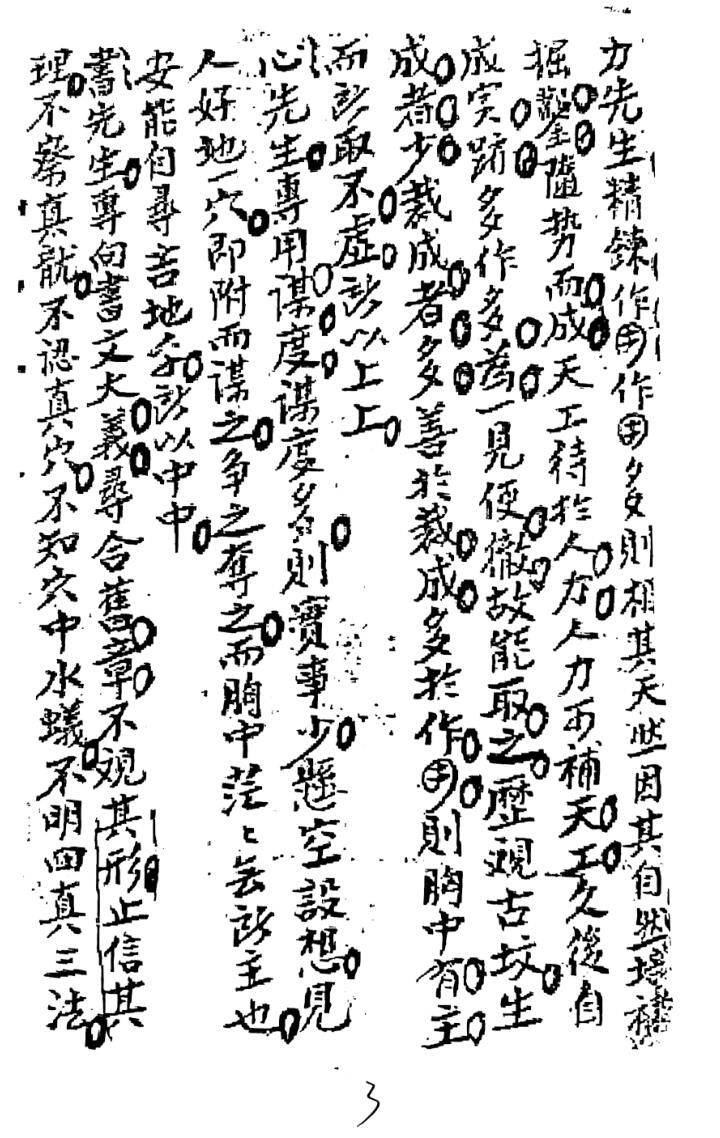 力先生精鍊作用作用多則相其天然因其自然培補
掘鑿隨勢而成天工待於人力人力可補天工久後自
成实跡多作多為一見便徹故能取之歷覌古坟生
成者少裁成者多善於裁成多於作用則胸中有主
而所取不虛所以上上
心先生專用謀度謀度多則實事少懸空設想見
人好地一穴即附而謀之争之奪之而胸中茫〻無所主也
安能自尋吉地乎所以中中
書先生專向書文大義尋合舊章不覌其形止信其
理不察真龍不認真穴不知穴中水蟻不明四真三法
3